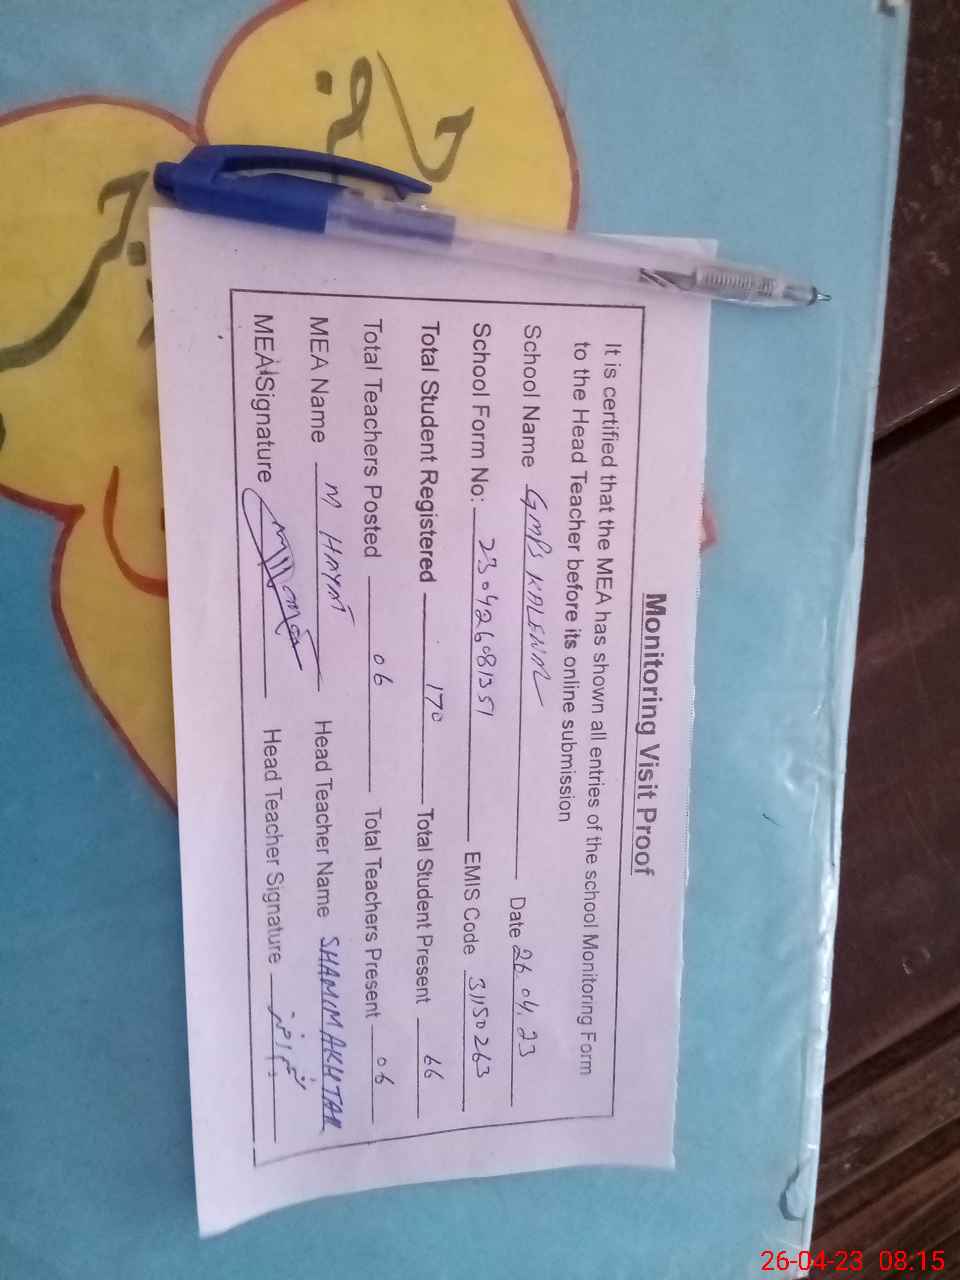 Monitoring Visit Proof
It is certified that the MEA has shown all entries of the school Monitoring Form
to the Head Teacher before its online submission
School Name GMPS Date 26.04.23
School Form No: 230426081351 EMIS Code 31150263
Total Student Registered 170 Total Student Present 66
Total Teachers Posted 06 Total Teachers Present 06
MEA Name M HAYAT Head Teacher Name SHAMIM AKHTAR
MEA Signature Head Teacher Signature
26-04-23 08:15